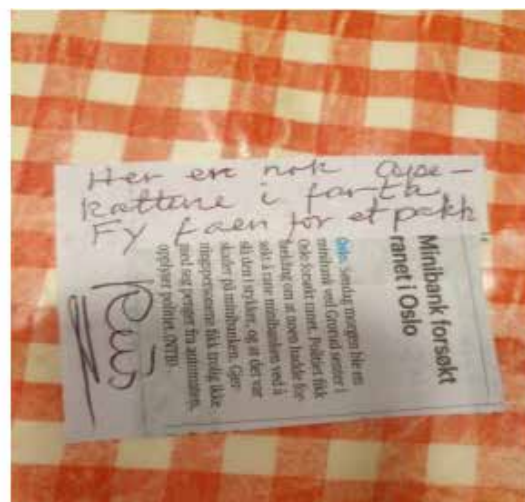 Her er nok Ape-
kattene i farta
Fy faen for et pakk
Minibank forsøkt
ranet i Oslo
Oslo: Søndag morgen ble en
minibank ved Grorud senter i
Oslo forsøkt ranet. Politiet fikk
melding om at noen hadde for-
søkt å rane minibanken ved å
slå den i stykker, og at det var
skader på minibanken. Gjer-
ningspersonene fikk trolig ikke
med seg penger fra automaten,
opplyser politiet. (NTB)